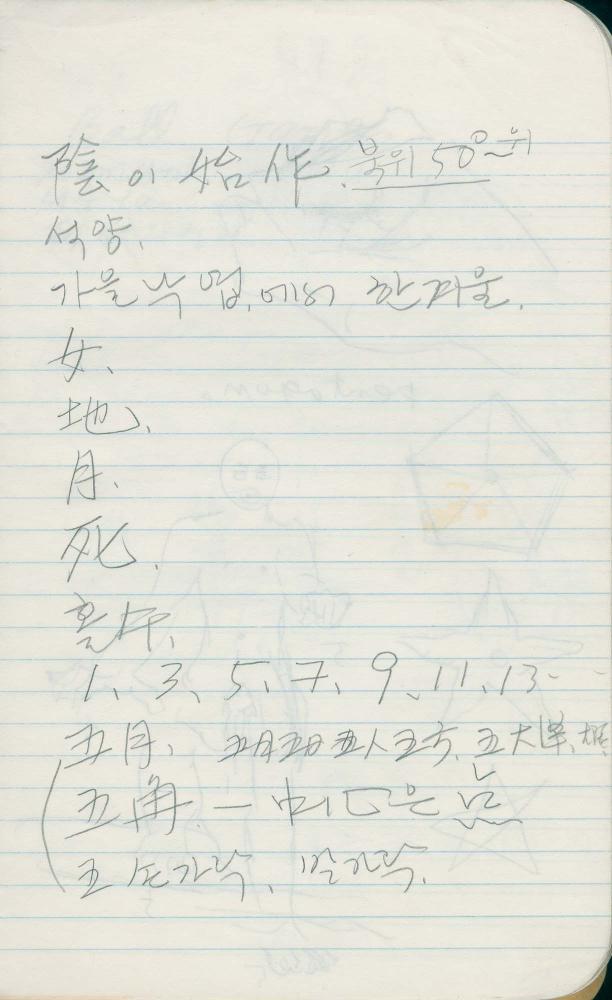 陰이 始作. 북위 50°~위
석양.
가을낙엽.에서 한겨울.
女.
地.
月.
死.
홀수.
1、3、5、7、9、11、13--
五月、五月五日 五人 五方、五大洋、
五角 — 中心은 点
五 손가락、발가락.